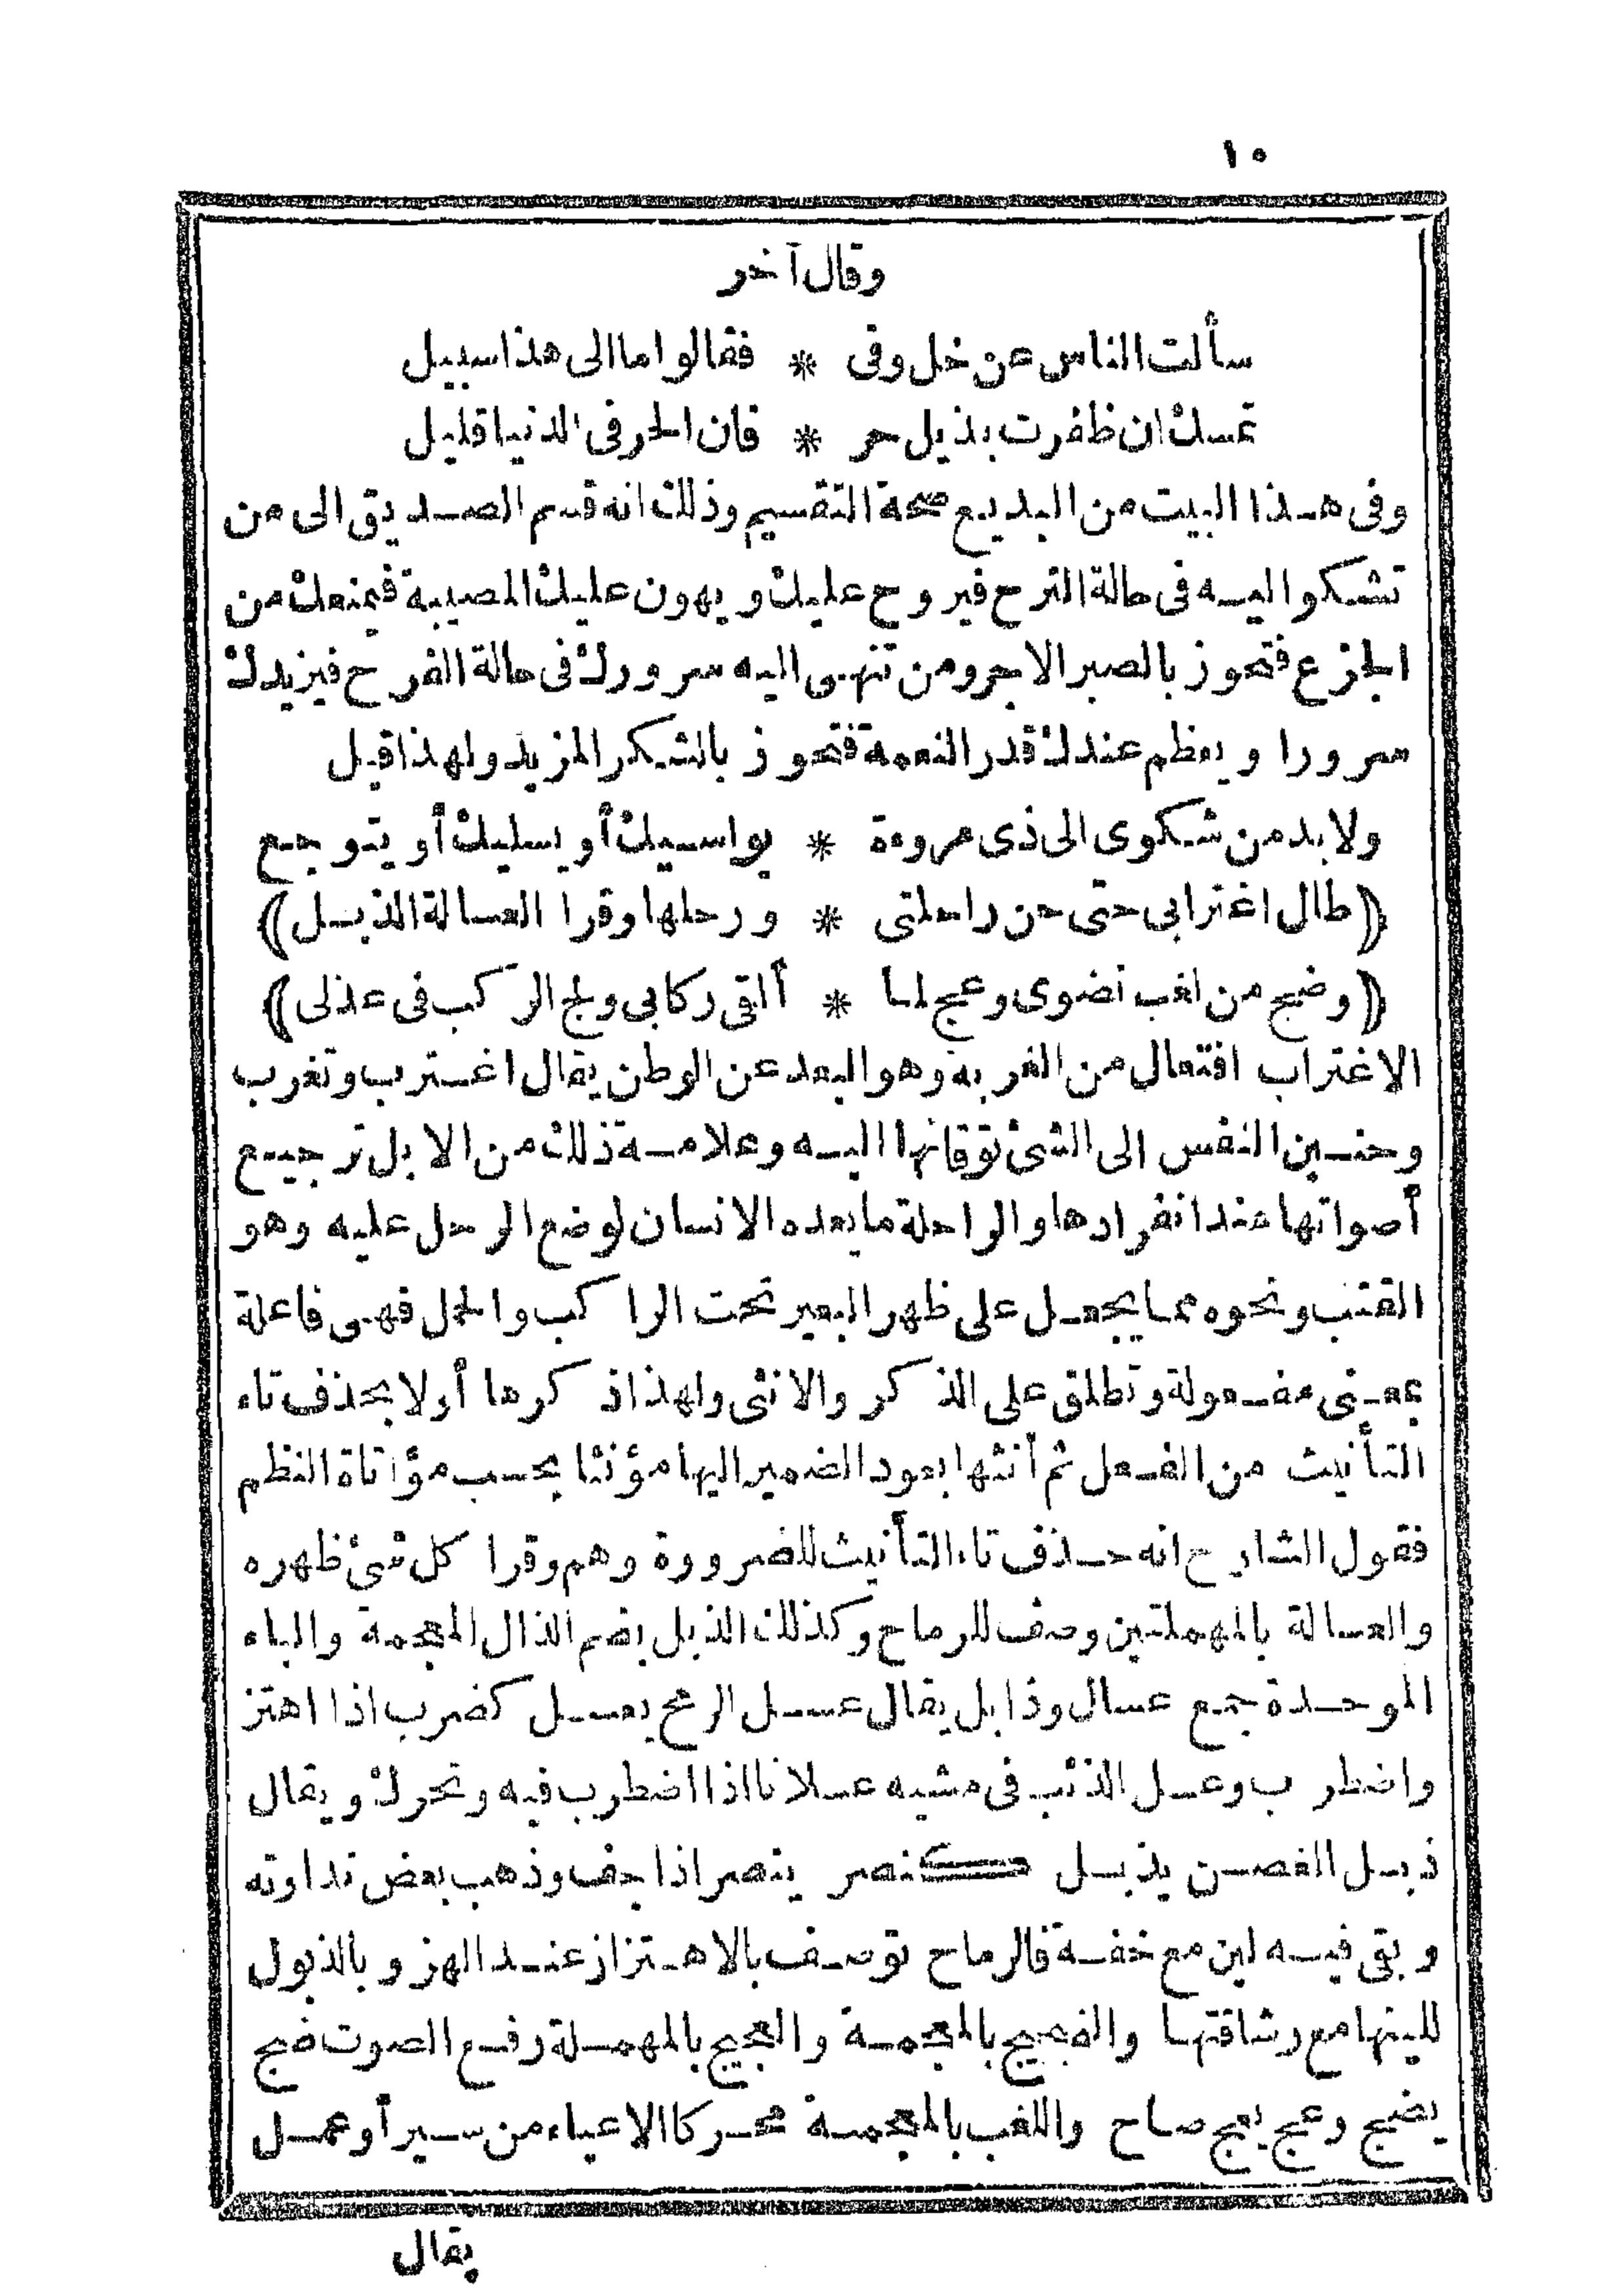 ١٥
وقال آخر
سألت الناس عن خل وفى * فقالوا ما الى هذا سبيل
تمسك ان ظفرت بذيل حر * فان الحر فى الدنيا قليل
وفى هذا البيت من البديع صحة التقسيم وذلك انه قسم الصديق الى من
تشكوا اليه فى حالة الترح فيروح عليك ويهون عليك المصيبة فيمنعك من
الجزع فتحوز بالصبر الاجر ومن تنهى اليه سرورك فى حالة الفرح فيزيدك
سرورا ويعظم عندك قدر النعمة فتحوز بالشكر المزيد ولهذا قيل
ولا بد من شكوى الى ذى مروءة * يواسيك أو يسليك أو يتوجع
﴿طال اغترابى حتى حن راحلتى * ورحلها وقرا العسالة الذبل﴾
﴿وضج من لغب نضوى وعج لما * ألقى ركابى ولج الركب فى عذلى﴾
الاغتراب افتعال من الغربة وهو البعد عن الوطن يقال اغترب وتغرب
وحنين النفس الى الشئ توقانها اليه وعلامة ذلك من الابل ترجيع
أصواتها عند انفرادها والراحلة ما يعده الانسان لوضع الرحل عليه وهو
القتب ونحوه مما يجعل على ظهر البعير تحت الراكب والحمل فهى فاعلة
بمعنى مفعولة وتطلق على الذكر والانثى ولهذا ذكرها أولا بحذف تاء
التأنيث من الفعل ثم أنثها بعود الضمير اليها مؤنثا بحسب مؤاتاة النظم
فقول الشارح انه حذف تاء التأنيث للضرورة وهم وقرا كل شئ ظهره
والعسالة بالمهملتين وصف للرماح وكذلك الذبل بضم الذال المعجمة والباء
الموحدة جمع عسال وذابل يقال عسل الرمح يعسل كضرب اذا اهتز
واضطرب وعسل الذئب فى مشيه عسلانا اذا اضطرب فيه وتحرك ويقال
ذبل الغصن يذبل كنصر ينصر اذا جف وذهب بعض نداوته
وبقى فيه لين مع خفة فالرماح توصف بالاهتزاز عند الهز وبالذبول
للينها مع رشاقتها والضجيج بالمعجمة والعجيج بالمهملة رفع الصوت ضج
يضج وعج يعج صاح واللغب بالمعجمة محركا الاعياء من سير أو عمل
يقال